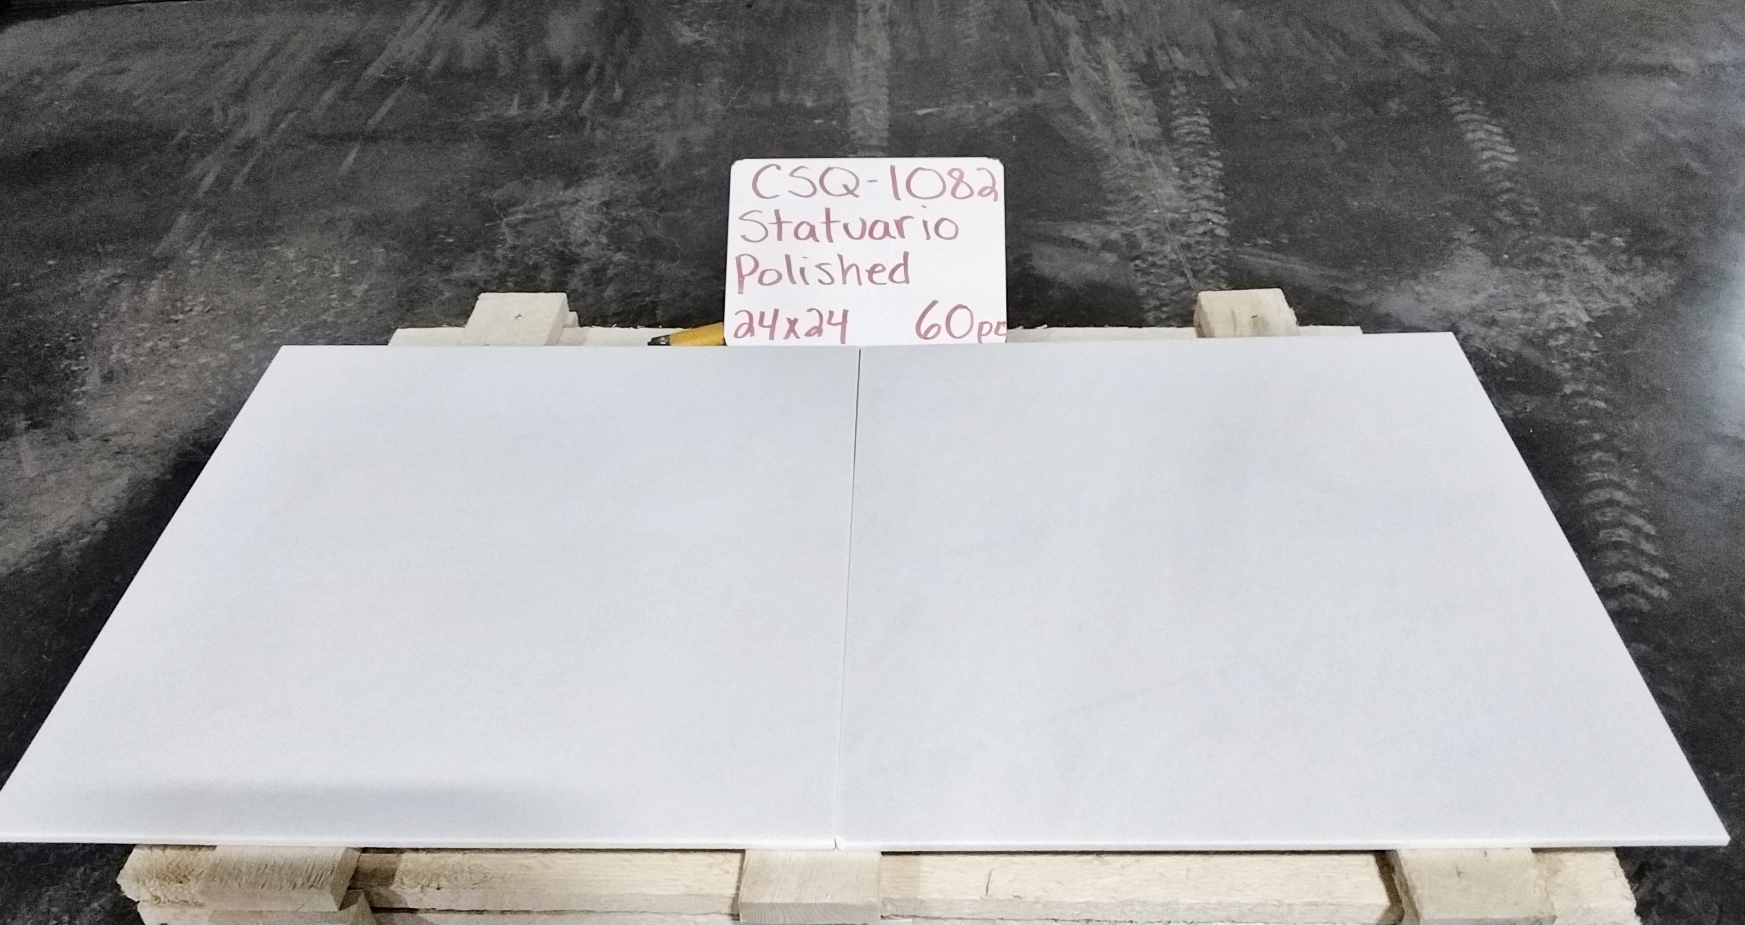 CSQ-1082
Statuario
Polished
24x24 60pc